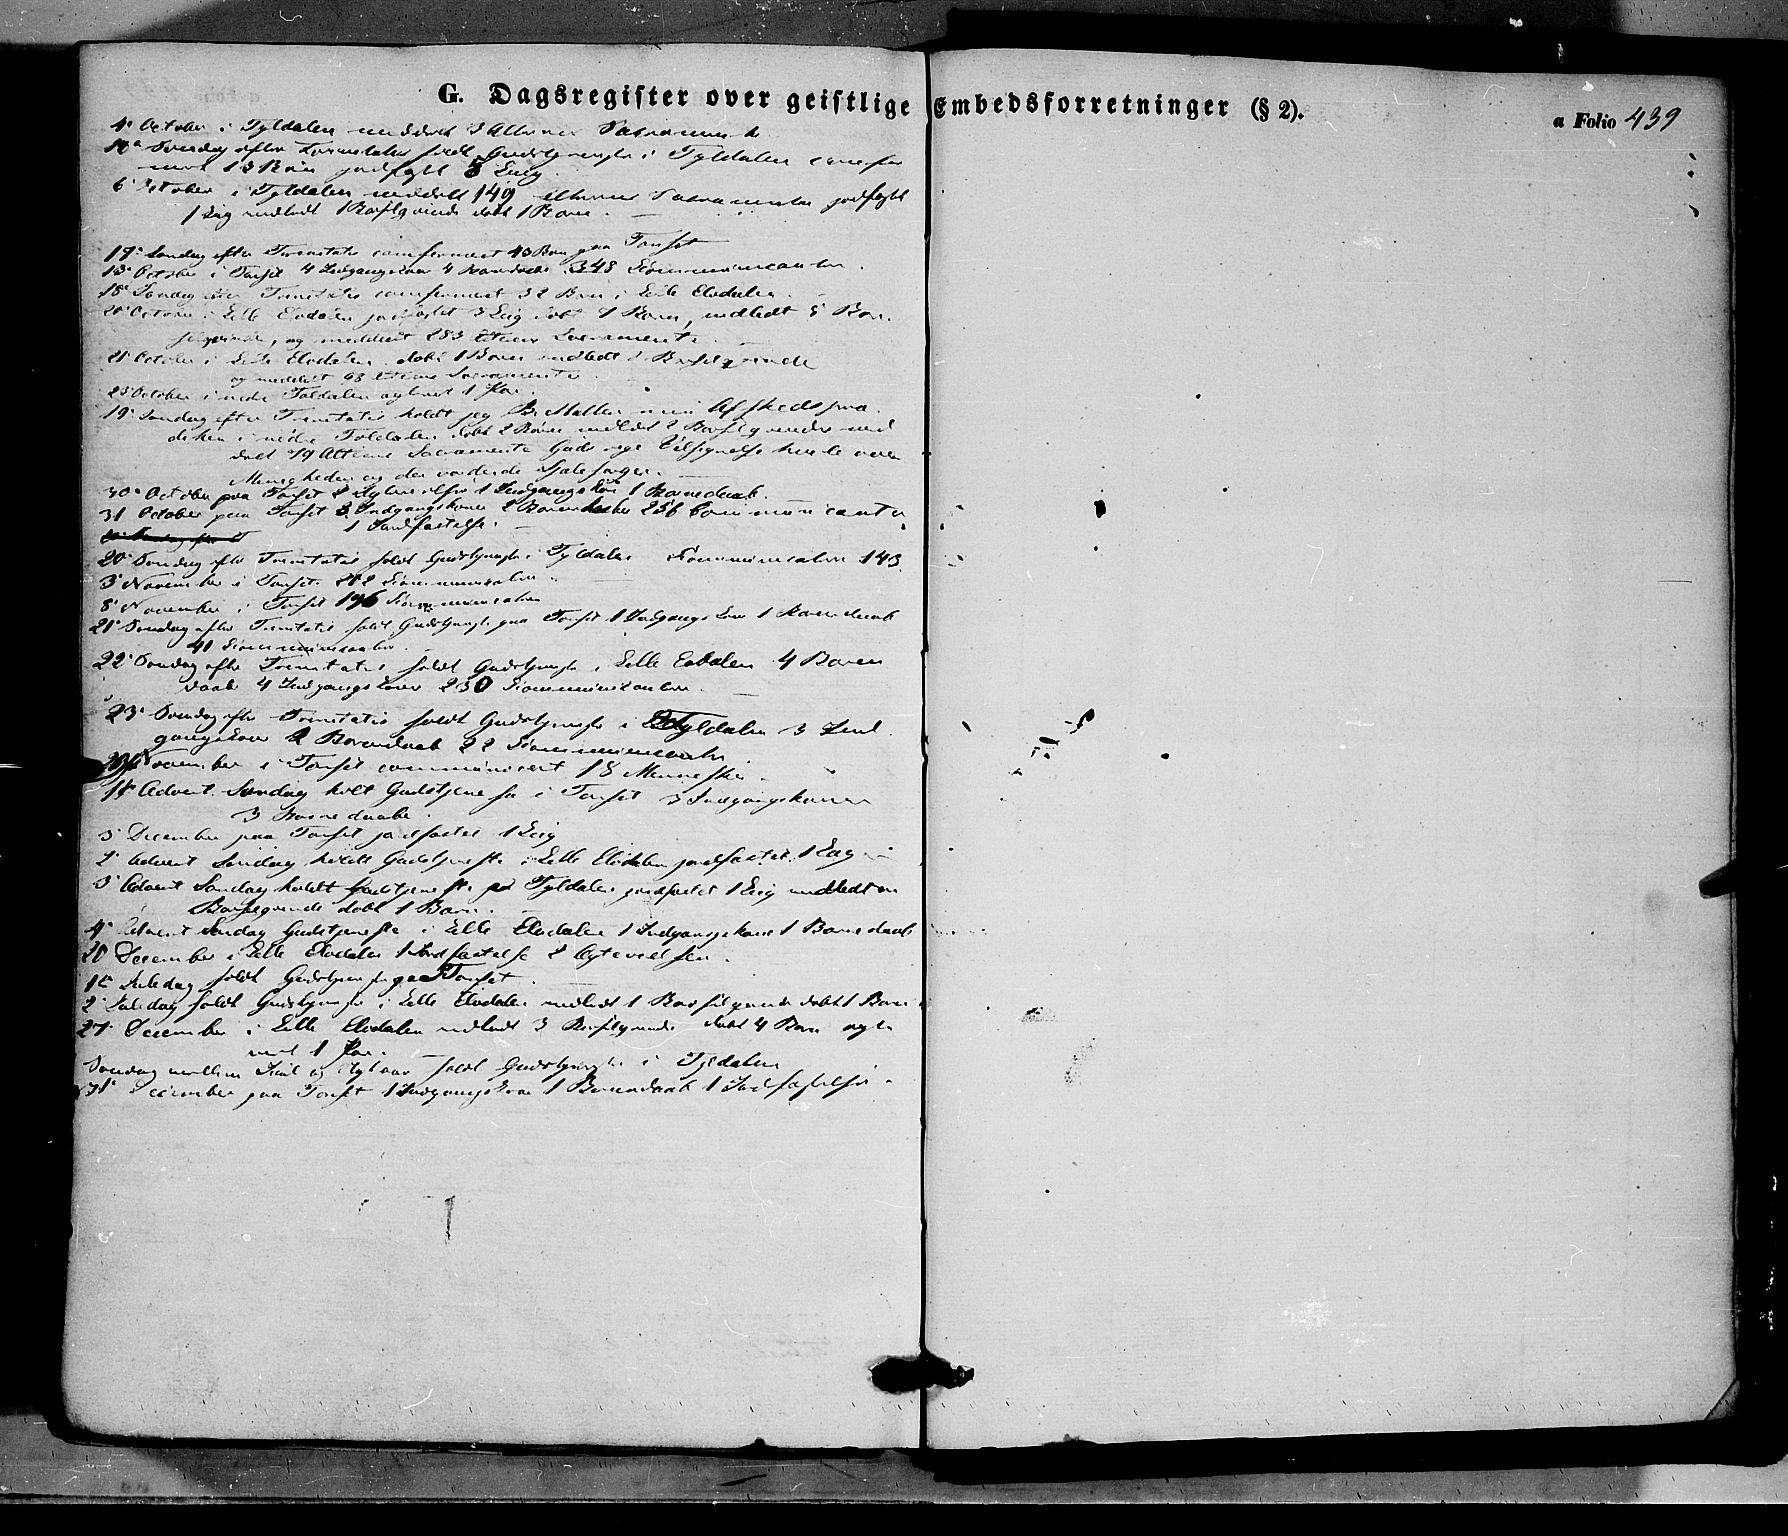 G. Dagsregister over geistlige Embedsforretninger (§ 2).
a Folio 439
4de October i Tyldalen meddelt 3 Alterens Sacramente
Søndag efter Trinitatis holdt Gudstjeneste i Tyldalen confir
meret 13 Børn jordfæstet 5 Liig
6 October i Tyldalen meddelt 149 Alterens Sacramente jordfæstet
1 Liig indledt 1 Barselqvinde døbt 1 Barn.
17de Søndag efter Trinitatis confirmeret 43 Børn paa Tønset
13de October i Tønset 4 Indgangskoner 4 Barnedaab 348 Communicanter.
18de Søndag efter Trinitatis confirmeret 32 Børn i Lille Elvdalen.
20de October i Lille Elvdalen jordfæstet 3 Liig døbt 4 Børn, indledt 5 Bar
selqvinder, og meddeelt 283 Alterens Sacramente.
21de October i Lille Elvdalen døbt 1 Barn indledt 2 Barselqvinde
og meddelt 68 Alterens Sacramente.
25de October i nedre Foldalen ægteviet 1 Par.
19de Søndag efter Trinitatis holdt jeg min Afskedspræ
diken i nedre Foldalen døbt 2 Børn indledt 2 Barselqvinder med
delt 79 Alterens Sacramente Guds rige Velsignelse hvile over
Menigheden og den vordende Sjælesørger.
30de October paa Tønset 2 1 Indgangskone 1 Barnedaab.
31 October paa Tønset 3 Indgangskoner 2 Barnedaabe 256 Communicanter
1 Jordfæstelse.
20de Søndag efter Trinitatis holdt Gudstjeneste i Tyldalen Communicanter 143.
3de November i Tønset 212 Communicanter.
8de November i Tønset 196 Communicanter
21de Søndag efter Trinitatis holdt Gudstjeneste paa Tønset 1 Indgangskone 1 Barnedaab
41 Communicanter.
22de Søndag efter Trinitatis holdt Gudstjeneste i Lille Elvdalen 4 Barne
daab 4 Indgangskoner 230 Communicanter.
23de Søndag efter Trinitatis holdt Gudstjeneste i Tyldalen 3 Ind
gangskoner 2 Barnedaab 22 Communicanter.
November i Tønset communicert 18 Mennesker.
1ste Advent Søndag holt Gudstjeneste i Tønset 3 Indgangskoner
3 Barnedaabe.
3de December paa Tønset jordfæstet 1 Liig
2de Advent Søndag holdt Gudstjeneste i Lille Elvdalen jordfæstet 1 Liig
3de Advent Søndag holdt Gudstjeneste paa Tyldalen jordfæstet 1 Liig indledt en
Barselqvinde døbt 1 Barn.
4de Advent Søndag Gudstjeneste i Lille Elvdalen 1 Indgangskone 1 Barnedaab
20 December i Lille Elvdalen 1 Jordfæstelse 2 Ægtevielser.
1ste Juledag holdt Gudstjeneste paa Tønset.
2de Juledag holdt Gudstjeneste i Lille Elvdalen indledt 1 Barselqvinde døbt 1 Barn
27de December i Lille Elvdalen indledt 3 Barselqvinde døbt 4 Børn ægte
viet 1 Par.
Søndag mellem Juul og Nytaar holdt Gudstjeneste i Tyldalen
31te December paa Tønset 1 Indgangskone 1 Barnedaab 1 Jordfæstelse.